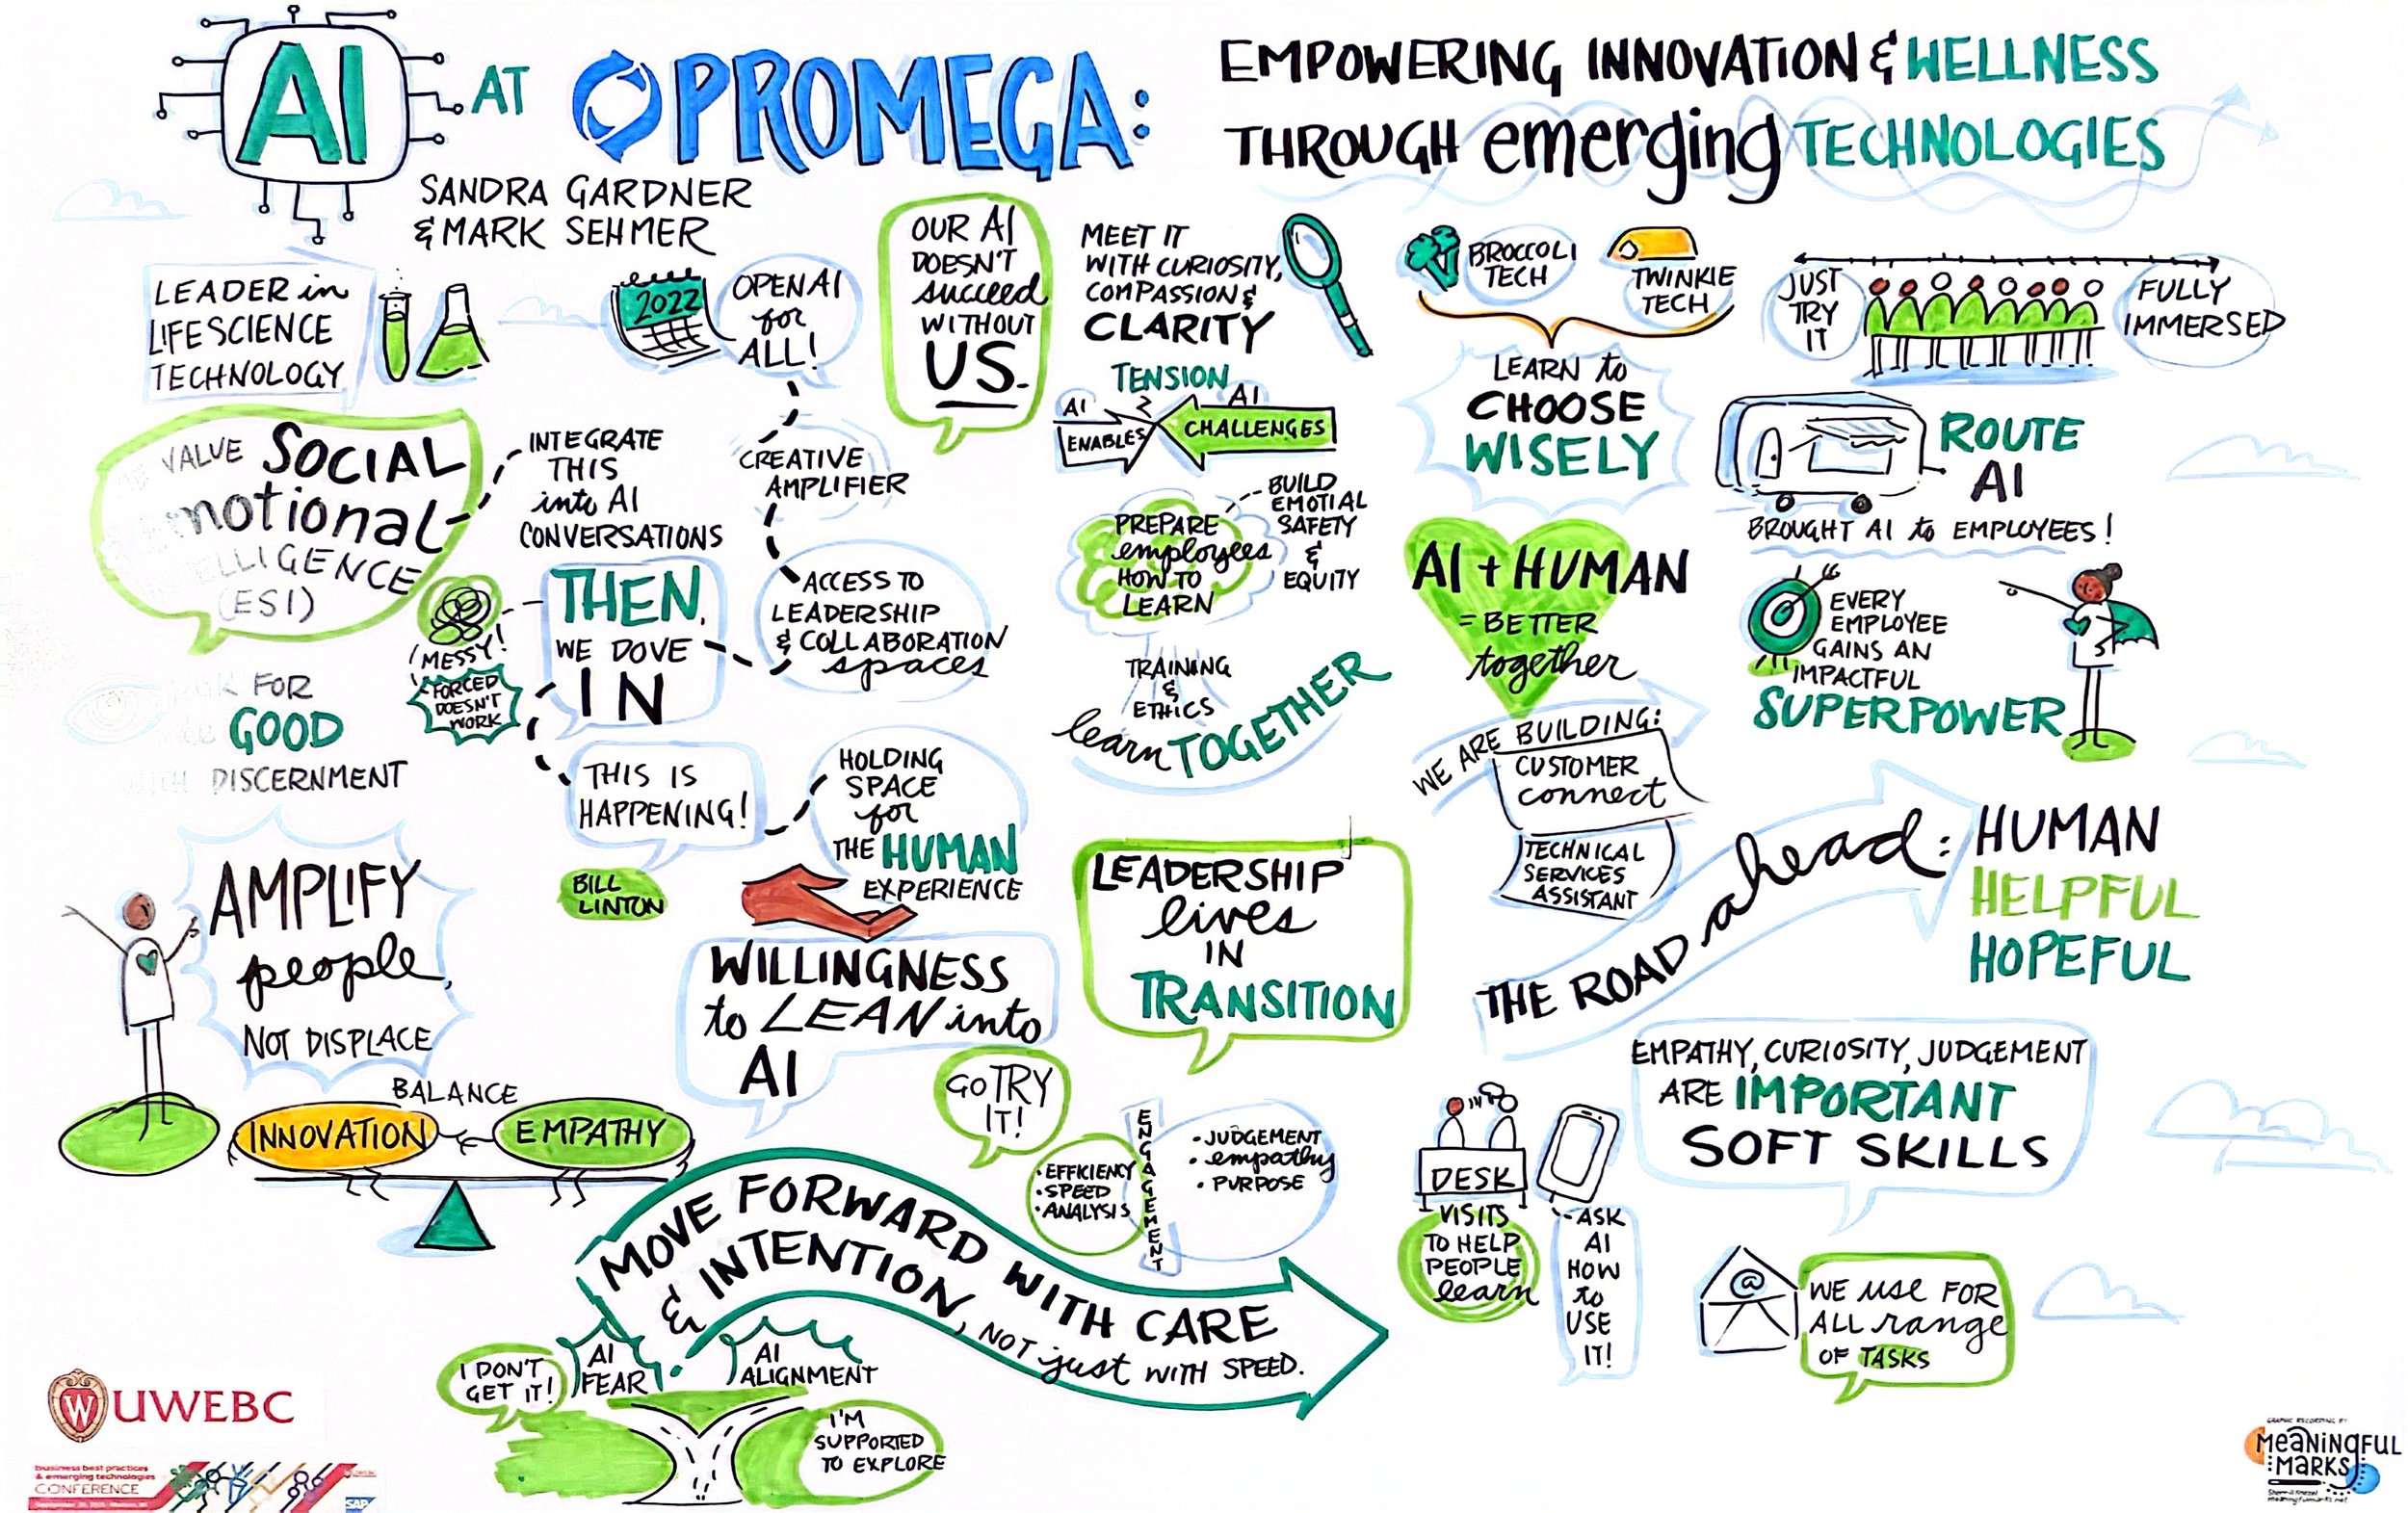 AI AT PROMEGA:
EMPOWERING INNOVATION & WELLNESS
THROUGH emerging TECHNOLOGIES
SANDRA GARDNER
& MARK SEHMER
LEADER in
LIFE SCIENCE
TECHNOLOGY
2022
OPEN AI
for
ALL!
OUR AI
DOESN'T
succeed
WITHOUT
US.
MEET IT
WITH CURIOSITY,
COMPASSION &
CLARITY
BROCCOLI
TECH
TWINKIE
TECH
LEARN to
CHOOSE
WISELY
JUST
TRY
IT
FULLY
IMMERSED
VALUE SOCIAL
emotional
INTELLIGENCE
(ESI)
INTEGRATE
THIS
into AI
CONVERSATIONS
CREATIVE
AMPLIFIER
TENSION
AI
ENABLES
AI
CHALLENGES
ROUTE
AI
BROUGHT AI to EMPLOYEES!
PREPARE
employees
HOW TO
LEARN
BUILD
EMOTIAL
SAFETY
&
EQUITY
TRAINING
&
ETHICS
learn TOGETHER
AI + HUMAN
= BETTER
together
EVERY
EMPLOYEE
GAINS AN
IMPACTFUL
SUPERPOWER
MESSY!
FORCED
DOESN'T
WORK
THEN,
WE DOVE
IN
ACCESS TO
LEADERSHIP
& COLLABORATION
spaces
FOR
the GOOD
WITH DISCERNMENT
THIS IS
HAPPENING!
BILL
LINTON
HOLDING
SPACE
for
THE HUMAN
EXPERIENCE
WE ARE BUILDING:
CUSTOMER
connect
TECHNICAL
SERVICES
ASSISTANT
THE ROAD ahead:
HUMAN
HELPFUL
HOPEFUL
AMPLIFY
people,
NOT DISPLACE
WILLINGNESS
to LEAN into
AI
LEADERSHIP
lives
IN
TRANSITION
BALANCE
INNOVATION
EMPATHY
GO TRY
IT!
• EFFICIENCY
• SPEED
• ANALYSIS
ENGAGEMENT
• JUDGEMENT
• empathy
• PURPOSE
EMPATHY, CURIOSITY, JUDGEMENT
ARE IMPORTANT
SOFT SKILLS
DESK
VISITS
TO HELP
PEOPLE
learn
ASK
AI
HOW
to
USE
IT!
@
WE use FOR
ALL range
OF TASKS
MOVE FORWARD WITH CARE
& INTENTION, NOT just WITH SPEED.
I DON'T
GET IT!
AI
FEAR
AI
ALIGNMENT
I'M
SUPPORTED
TO EXPLORE
W UWEBC
business best practices
& emerging technologies
CONFERENCE
SAP
GRAPHIC RECORDING BY
MeaNiNgFUL
MaRKS